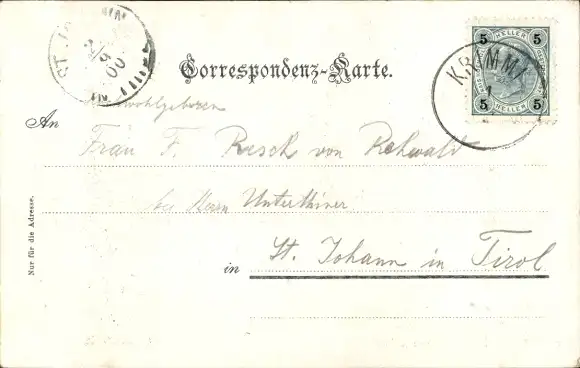 ST. JOHANN
2/9
00
Correspondenz-Karte.
KRIMML
5 HELLER 5
5 HELLER 5
wohlgeboren
An
Frau F. Resch von Rehwald
bei Herrn Unterthiner
in St. Johann in Tirol
Nur für die Adresse.